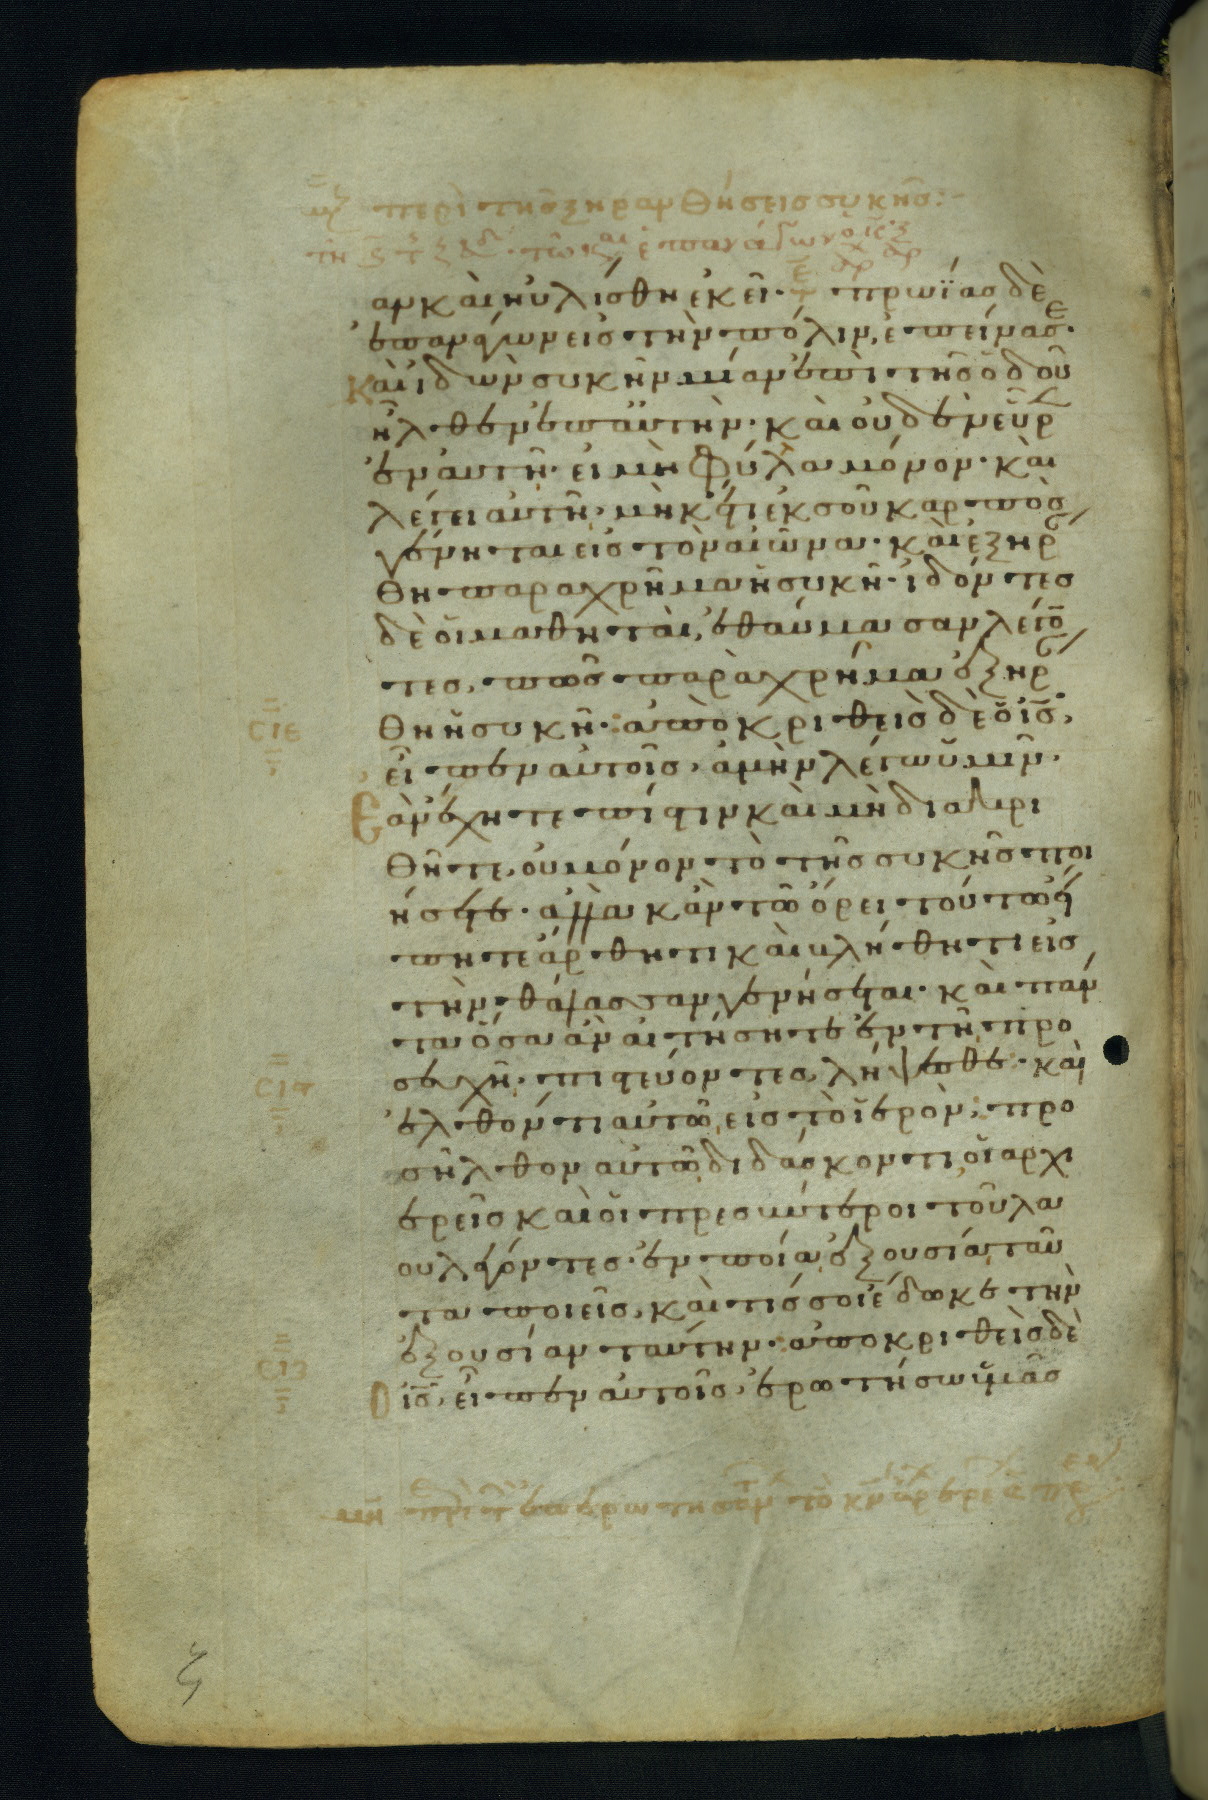 περὶ τῆς ξηρανθήσεις συκῆς:
αν καὶ ηὐλίσθη ἐκεῖ· πρωΐας δὲ
ἐπανάγων εἰς τὴν πόλιν, ἐπείνασε·
Καὶ ἰδὼν συκῆν μίαν ἐπὶ τῆς ὁδοῦ
ἦλθεν ἐπ αὐτὴν· καὶ οὐδὲν εὗρ
ἐν αὐτῆ· εἰ μὴ φύλλα μόνον· καὶ
λέγει αὐτῆ, μηκέτι ἐκ σοῦ καρπὸς
γένηται εἰς τὸν αἰῶνα· καὶ ἐξηρ
θη παραχρῆμα ἡ συκῆ· ἰδόντες
δὲ οἱ μαθηταὶ, ἐθαύμασαν λέγο
τες, πῶς παραχρῆμα ἐξηρ
θη ἡ συκῆ· ἀποκριθεὶς δὲ ὁ ις,
εἶπεν αὐτοῖς, ἀμὴν λέγω ὑμῖν·
Ἐὰν ἔχητε πίστιν καὶ μὴ διακρι
θῆτε, οὐ μόνον τὸ τῆς συκῆς ποι
ήσετε· ἀλλὰ κἂν τῶ ὄρει τούτω εἴ
πητε ἄρθητι καὶ βλήθητι εἰς
τὴν θάλασσαν γενήσεται· καὶ πάν
τα ὅσα ἂν αἰτήσητε ἐν τῆ προ
σευχῆ· πιστεύοντες, λήψεσθε· καὶ
ἐλθόντι αὐτῶ εἰς τὸ ἱερὸν, προ
σῆλθον αὐτῶ διδάσκοντι, οἱ αρχι
ερεῖς καὶ οἱ πρεσβύτεροι τοῦ λα
ου λέγοντες· ἐν ποία ἐξουσία ταῦ
τα ποιεῖς, καὶ τίς σοι ἔδωκε τὴν
ἐξουσίαν ταύτην· ἀποκριθεὶς δὲ
Ὁ ις, εἶπεν αὐτοῖς, ἐρωτήσω ὑμᾶς